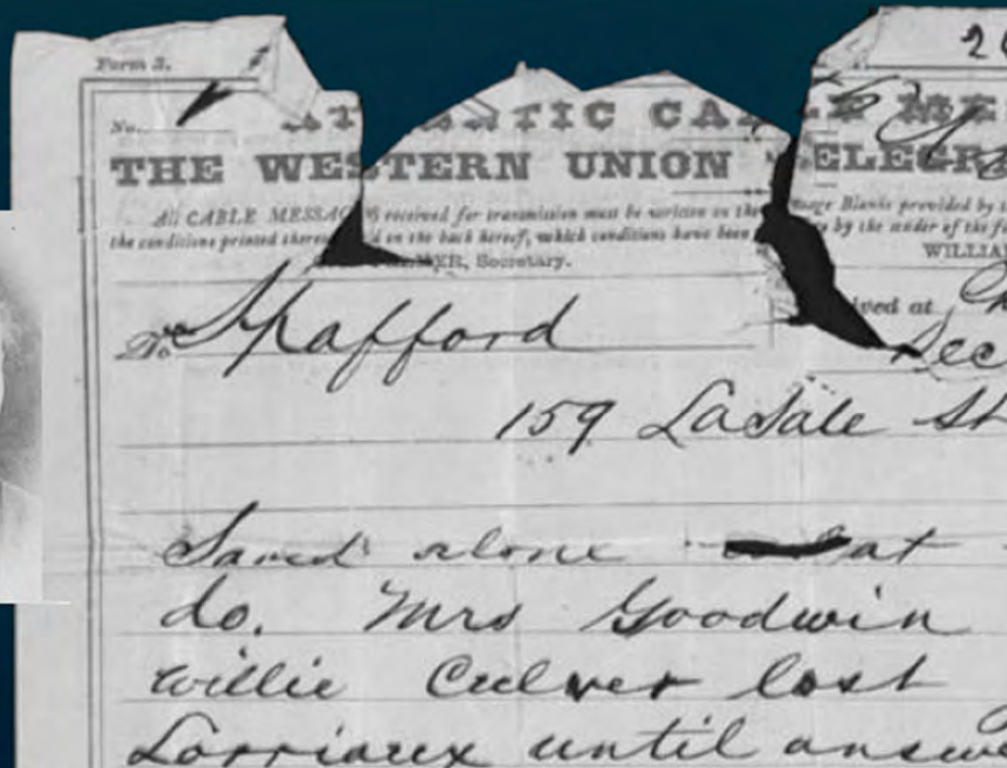 Form 3.
No.
ATLANTIC CA LE ME
THE WESTERN UNION ELEGR
All CABLE MESSAGES received for transmission must be written on the sage Blanks provided by
the conditions printed thereo d on the back hereof, which conditions have been by the sender of the fo
ER, Secretary. WILLIA
ived at
To Spafford Dec
159 LaSale St
Saved alone at
do. Mrs Goodwin
Willie Culver lost
Lorriaux until answ